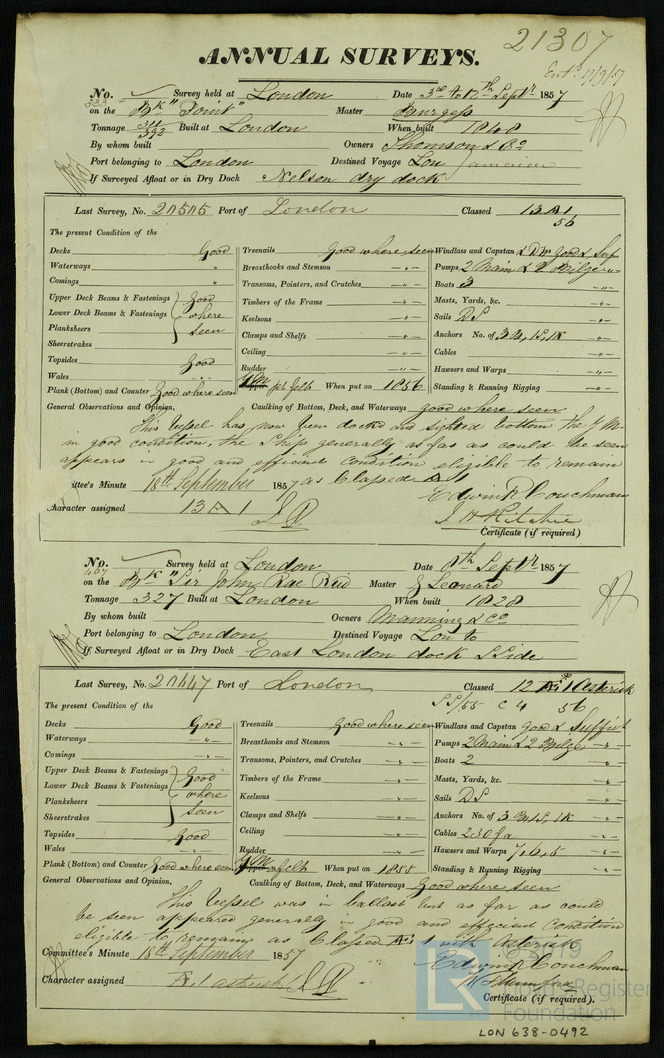 21307
ANNUAL SURVEYS.
Ent. 17/9/57
No. 323 Survey held at London Date 3rd to 12th Septr 1857
on the Bk "Point" Master Burgess
Tonnage 311 392 Built at London When built 1848
By whom built Owners Thomson & Co
Port belonging to London Destined Voyage Lon Jamaica
If Surveyed Afloat or in Dry Dock Nelson dry dock
Last Survey, No. 20505 Port of London Classed 13 A1
56
The present Condition of the
Decks Good
Waterways "
Comings "
Upper Deck Beams & Fastenings Good
Lower Deck Beams & Fastenings where
Planksheers seen
Sheerstrakes
Topsides Good
Wales "
Plank (Bottom) and Counter Good where seen
Treenails Good where seen
Breasthooks and Stemson "
Transoms, Pointers, and Crutches "
Timbers of the Frame "
Keelsons "
Clamps and Shelfs "
Ceiling "
Rudder "
Y.M. pt felt When put on 1856
Windlass and Capstan & DW good & Suf
Pumps 2 Main & 2 Bilge "
Boats 3 "
Masts, Yards, &c. "
Sails DS "
Anchors No. of 3B, 1S, 1K "
Cables "
Hawsers and Warps "
Standing & Running Rigging "
General Observations and Opinion, Caulking of Bottom, Deck, and Waterways good where seen
This Vessel has now been docked and sighted bottom the Y M
in good condition, the Ship generally as far as could be seen
appears in good and efficient condition eligible to remain
as Classed A1
Committee's Minute 18th September 1857
Edwin R Couchman
Character assigned 13 A 1
J H Ritchie
Certificate (if required)
No. 467 Survey held at London Date 8th Septr 1857
on the Bk "Sir John Rae Reid Master J Leonard
Tonnage 327 Built at London When built 1828
By whom built Owners Manning & Co
Port belonging to London Destined Voyage Lon to
If Surveyed Afloat or in Dry Dock East London dock S Side
Last Survey, No. 20447 Port of London Classed 12 Æ1 Asterisk
SS/55 C 4 56
The present Condition of the
Decks Good
Waterways "
Comings "
Upper Deck Beams & Fastenings Good
Lower Deck Beams & Fastenings where
Planksheers seen
Sheerstrakes
Topsides Good
Wales "
Plank (Bottom) and Counter Good where seen
Treenails Good where seen
Breasthooks and Stemson "
Transoms, Pointers, and Crutches "
Timbers of the Frame "
Keelsons "
Clamps and Shelfs "
Ceiling "
Rudder "
Y.M. & felt When put on 1855
Windlass and Capstan good & Suffict
Pumps 2 Main & 2 Bilge "
Boats 2 "
Masts, Yards, &c. "
Sails DS "
Anchors No. of 3 B, 1S, 1K "
Cables 230 fa "
Hawsers and Warps 7, 6, 5 "
Standing & Running Rigging "
General Observations and Opinion, Caulking of Bottom, Deck, and Waterways Good where seen
This Vessel was in ballast but as far as could
be seen appeared generally in good and efficient condition
eligible to remain as Classed Æ 1 with Asterisk
Committee's Minute 18th September 1857
Edwin R Couchman
Character assigned Æ 1 asterisk
Mumford
Certificate (if required).
© 2019
Lloyd's Register
Foundation
LON 638-0492